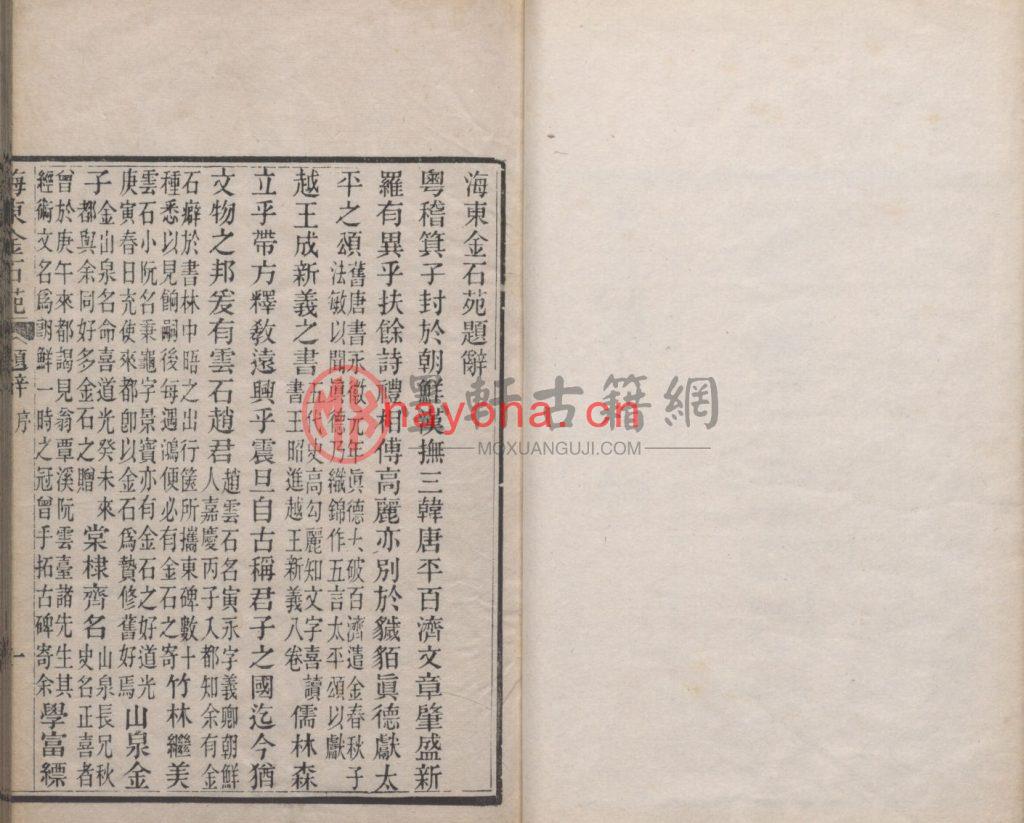 海東金石苑題辭
粵稽箕子封於朝鮮漢撫三韓唐平百濟文章肇盛新
羅有異乎扶餘詩禮相傳高麗亦別於獩貊眞德獻太
平之頌舊唐書永徽元年眞德大破百濟遣金春秋子法敏以聞眞德乃織錦作五言太平頌以獻
越王成新義之書五代史高勾麗知文字喜讀書王昭進越王新義八卷儒林森
立乎帶方釋敎遠興乎震旦自古稱君子之國迄今猶
文物之邦爰有雲石趙君趙雲石名寅永字羲卿朝鮮人嘉慶丙子入都知余有金
石癖於書林中晤之出行篋所攜東碑數十種悉以見餉嗣後每遇鴻便必有金石之寄竹林繼美
雲石小阮名秉龜字景寶亦有金石之好道光庚寅春日充使來都卽以金石爲贄修舊好焉山泉金
子金山泉名命喜道光癸未來都與余同好多金石之贈棠棣齊名山泉長兄秋史名正喜者
曾於庚午來都謁見翁覃溪阮雲臺諸先生其經術文名爲朝鮮一時之冠曾手拓古碑寄余學富縹
海東金石苑 題辭 序 一
墨軒古籍網
nayona.cn
MOXUANGUJI.COM